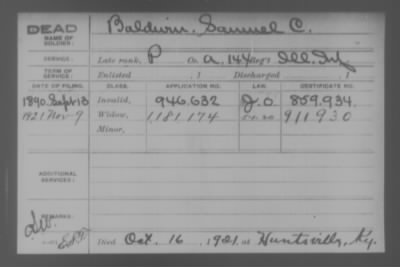 DEAD
NAME OF SOLDIER: Baldwin, Samuel C.
SERVICE: Late rank, P Co. A, 144 Reg't Ill. Inf
TERM OF SERVICE: Enlisted , 1 Discharged , 1
DATE OF FILING. CLASS. APPLICATION NO. LAW. CERTIFICATE NO.
1890 Sept 13 Invalid, 946.632 J.O. 859.934.
1921 Nov-9 Widow, 1181174 911930
Minor,
ADDITIONAL SERVICES:
REMARKS:
Died Oct. 16, 1921, at Huntsville, Ky.